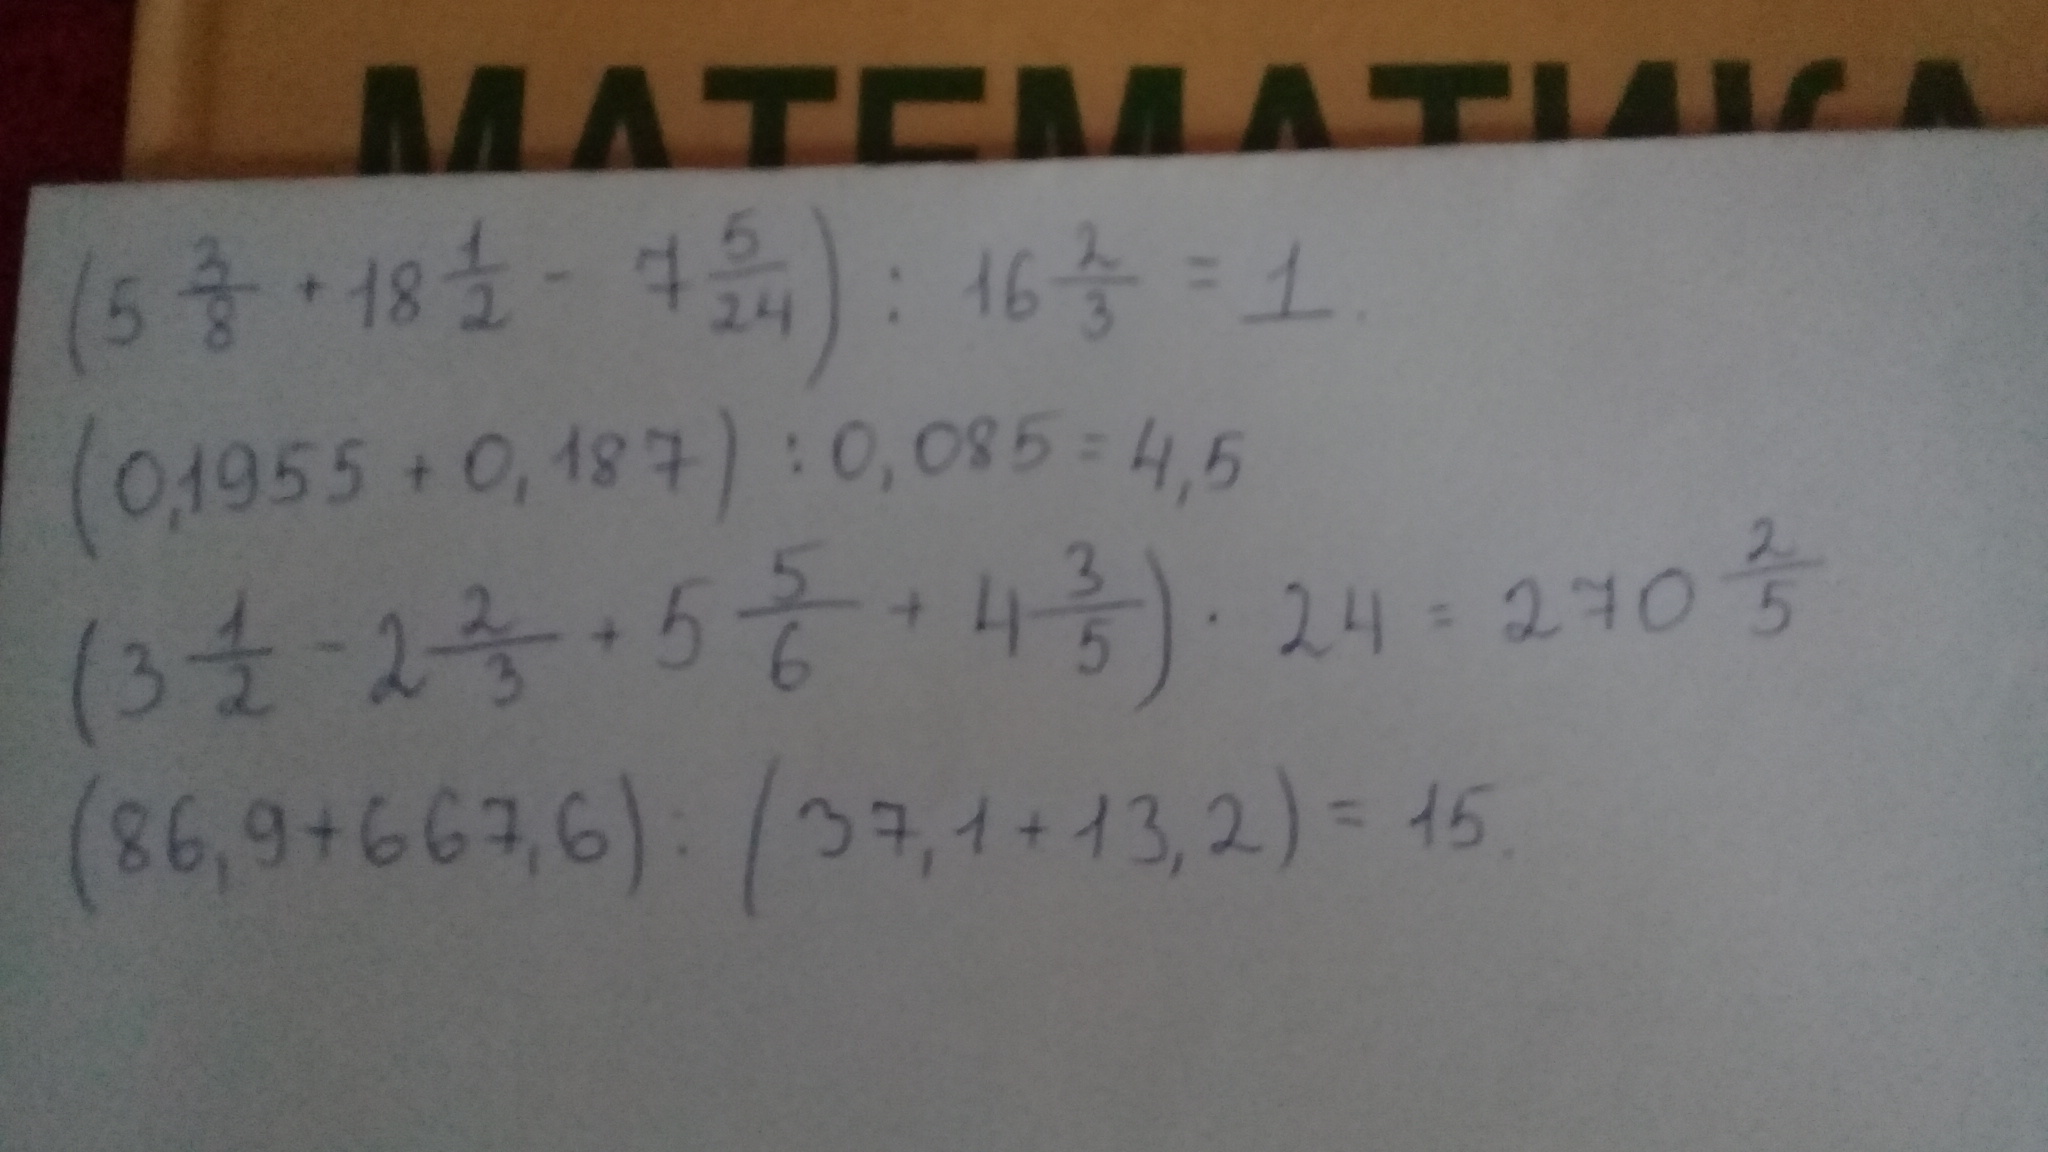 МАТЕМАТИКА
(5 3/8 + 18 1/2 - 7 5/24) : 16 2/3 = 1.
(0,1955 + 0,187) : 0,085 = 4,5
(3 1/2 - 2 2/3 + 5 5/6 + 4 3/5) · 24 = 270 2/5
(86,9 + 667,6) : (37,1 + 13,2) = 15.